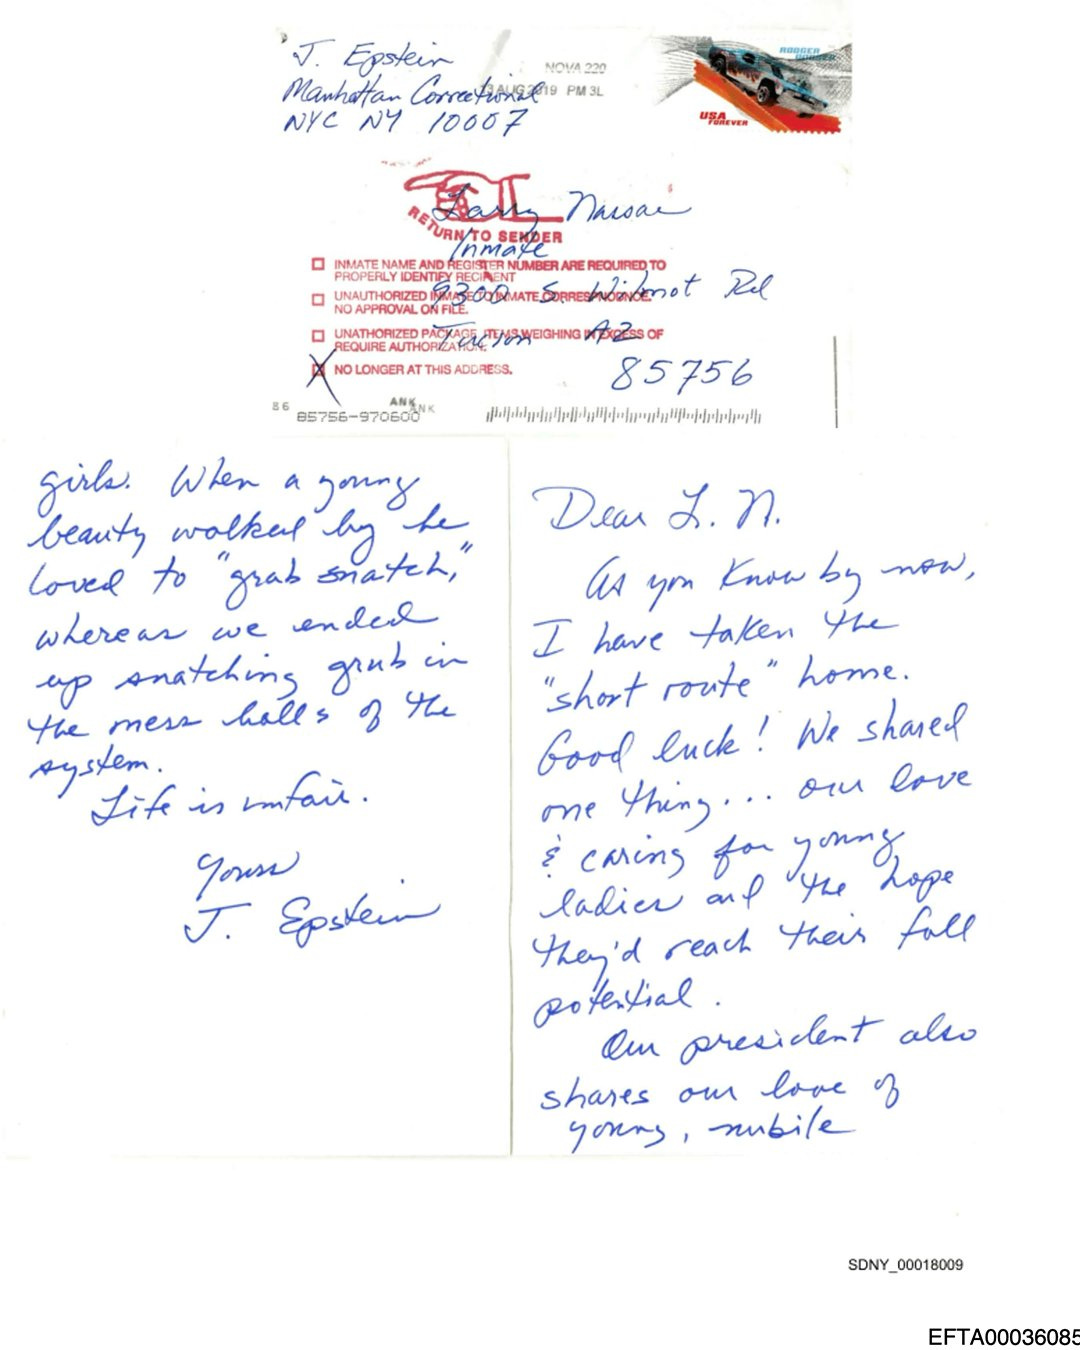 J. Epstein
Manhattan Correctional
NYC NY 10007
NOVA 220
AUG 2019 PM 3L
RODGER
USA
FOREVER
RETURN TO SENDER
Larry Nassar
Inmate
9300 S. Wilmot Rd
Tucson AZ
85756
INMATE NAME AND REGISTER NUMBER ARE REQUIRED TO
PROPERLY IDENTIFY RECIPIENT
UNAUTHORIZED INMATE TO INMATE CORRESPONDENCE.
NO APPROVAL ON FILE.
UNATHORIZED PACKAGE, ITEMS WEIGHING IN EXCESS OF
REQUIRE AUTHORIZATION.
X NO LONGER AT THIS ADDRESS.
86
ANK
ANK
85756-970600
Dear L. N.
As you know by now,
I have taken the
"short route" home.
Good luck! We shared
one thing... our love
& caring for young
ladies and the hope
they'd reach their full
potential.
Our president also
shares our love of
young, nubile
girls. When a young
beauty walked by he
loved to "grab snatch,"
whereas we ended
up snatching grub in
the mess halls of the
system.
Life is unfair.
Yours
J. Epstein
SDNY_00018009
EFTA00036085